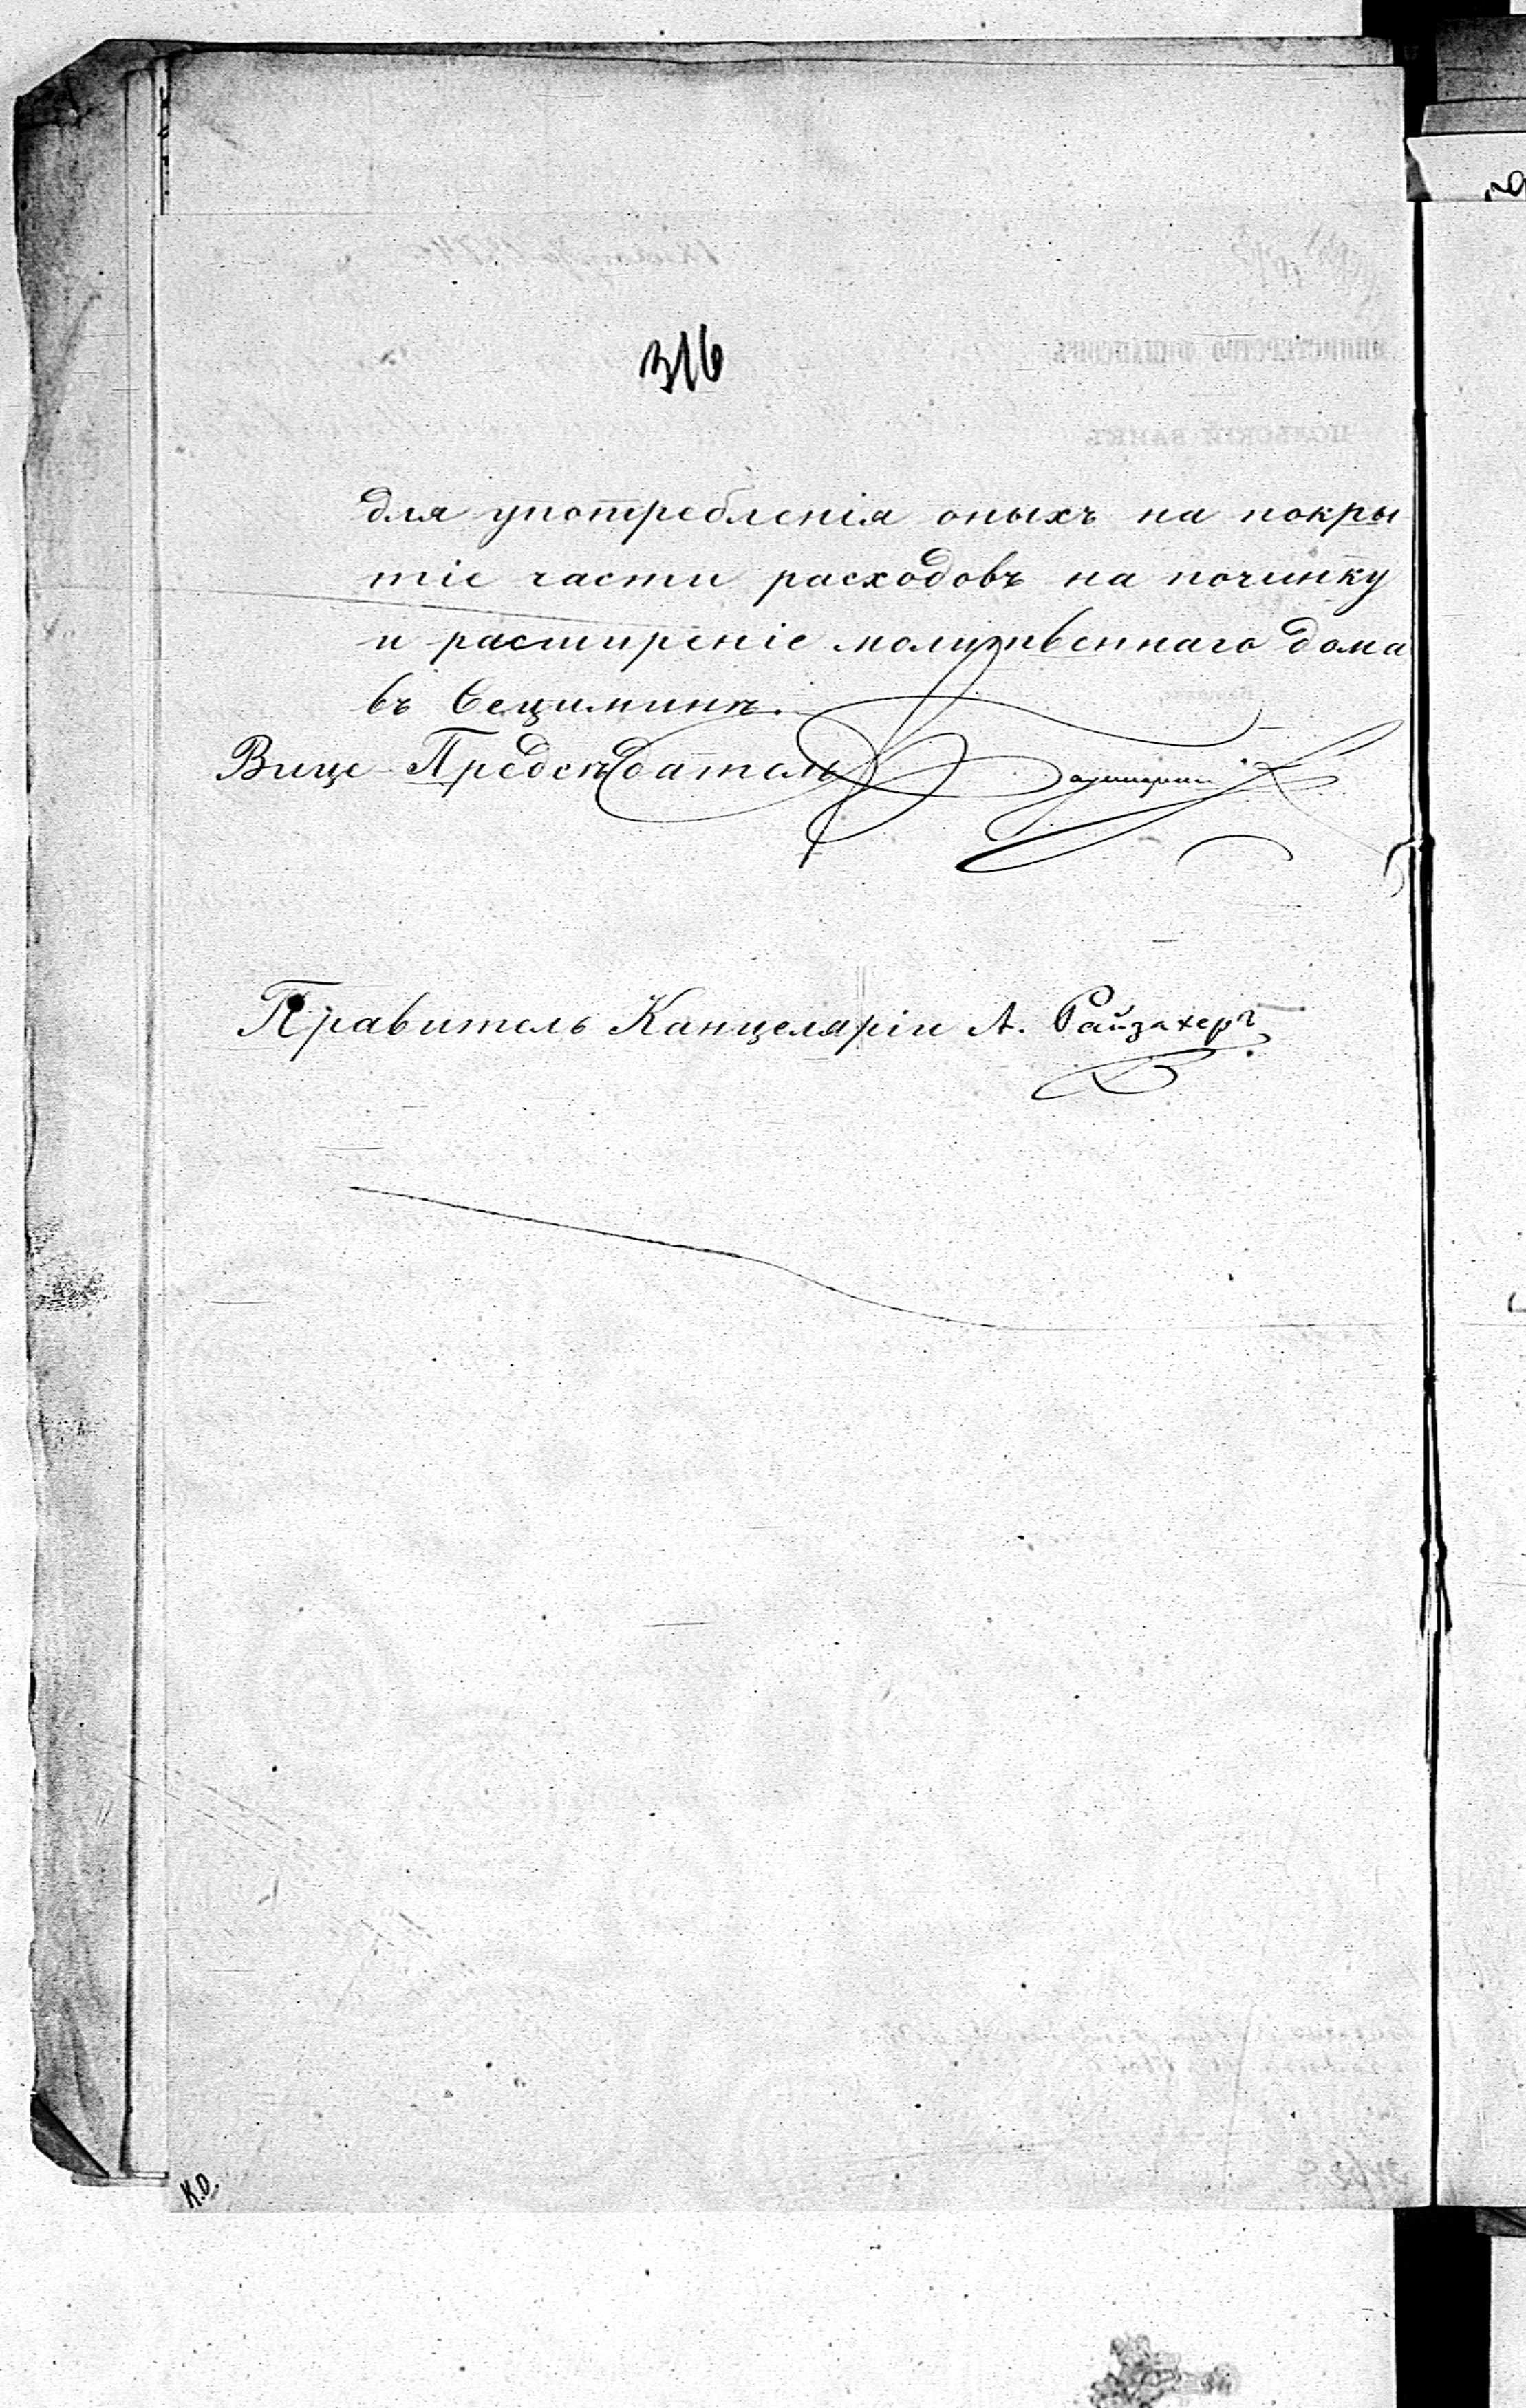 316
для употребленія оныхъ на покры
тіе части расходовъ на починку
и расширеніе молитвеннаго дома
въ Сециминѣ.
Вице-Предсѣдатель
Правитель Канцеляріи А. Райзахеръ
К.О.